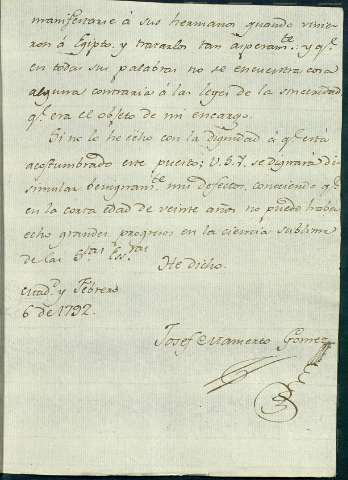 manifestarse á sus hermanos quando vinie
ron á Egipto, y tratarlos tan asperam.te: y q.e
en todas sus palabras no se encuentra cosa
alguna contraria á las leyes de la sinceridad
q.e era el objeto de mi encargo.
Si no lo he echo con la dignidad á q.e está
acostumbrado este puesto; V.S.Y. se dignará di
simular benignam.te mis defectos, conociendo q.e
en la corta edad de veinte años no puedo haber
echo grandes progresos en la ciencia sublime
de las S.tas Ess.ras
He dicho.
Mad.d y Febrero
6 de 1792.
Josef Mamerto Gomez